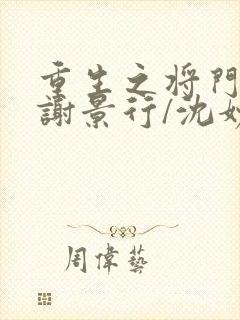 重生之将門
謝景行/沈妙
周偉藝